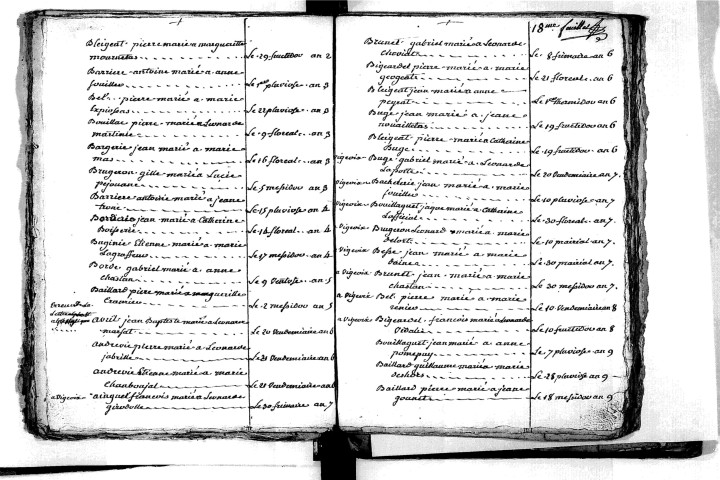 Bleigeat pierre marié a marguerite
mournetas le 29 fructidor an 2
Barriere antoine marié a anne
fouillas le 1er pluviose an 3
Bel pierre marié a marie
Expinsson le 22 pluviose an 3
Bouillac pierre marié a Léonarde
martinie le 9 floreal an 3
Bargerie jean marié a marie
mas le 16 floreal an 3
Brugeron gille marié a Lucie
pejouane le 5 messidor an 3
Barriere antoine marié a jeane
le 15 pluviose an 4
Bordais jean marié a Catherine
Boisserie le 14 floreal an 4
Buginie Etienne marié a marie
Lagraffeul le 17 messidor an 4
Borde gabriel marié a anne
chastan le 9 Ventose an 5
Baillard pierre marié a marguerite
le 2 messidor an 5
avril jean Baptiste marié a Leonarde
marsat le 20 Vendemiaire an 6
andrevie pierre marié a Leonarde
jabrille le 21 Vendemiaire an 6
andrevie Etienne marié a marie
Chanboujal le 21 Vendemiaire an 6
a Vigeois ainquet francois marié a Leonarde
girodolle le 30 frimaire an 7
18me feuillet
Brunet gabriel marié a Leonarde
choviat le 8 frimaire an 6
Bigeardel pierre marié a marie
geogeat le 21 floreal an 6
Bleigeat jean marié a anne
peyrat le 1er thermidor an 6
Buge jean marié a jeane
nouailletas le 19 fructidor an 6
Bleigeat pierre marié a Catherine
Buge le 19 fructidor an 6
Vigeois Buge gabriel marié a Leonarde
Laporte le 20 Vendemiaire an 7
Vigeois Bachelerie jean marié a marie
fouillas le 10 pluviose an 7
Vigeois Bouillaguet jaque marié a Catherine
Laffleiral le 30 floreal an 7
a Vigeois Brugeron Leonard marié a marie
delort le 10 prairial an 7
a Vigeois Besse jean marié a marie
daine le 30 prairial an 7
a Vigeois Brunet jean marié a marie
chastan le 30 messidor an 7
a Vigeois Bel pierre marié a marie
renier le 10 Vendemiaire an 8
a Vigeois Bigeardel francois marié a Leonarde
Vidalie le 10 fructidor an 8
Bouillaguet jean marié a anne
pompuy le 7 pluviose an 9
Baillard guillaume marié a marie
deshors le 28 pluviose an 9
Baillard pierre marié a jeane
gounet le 18 messidor an 9